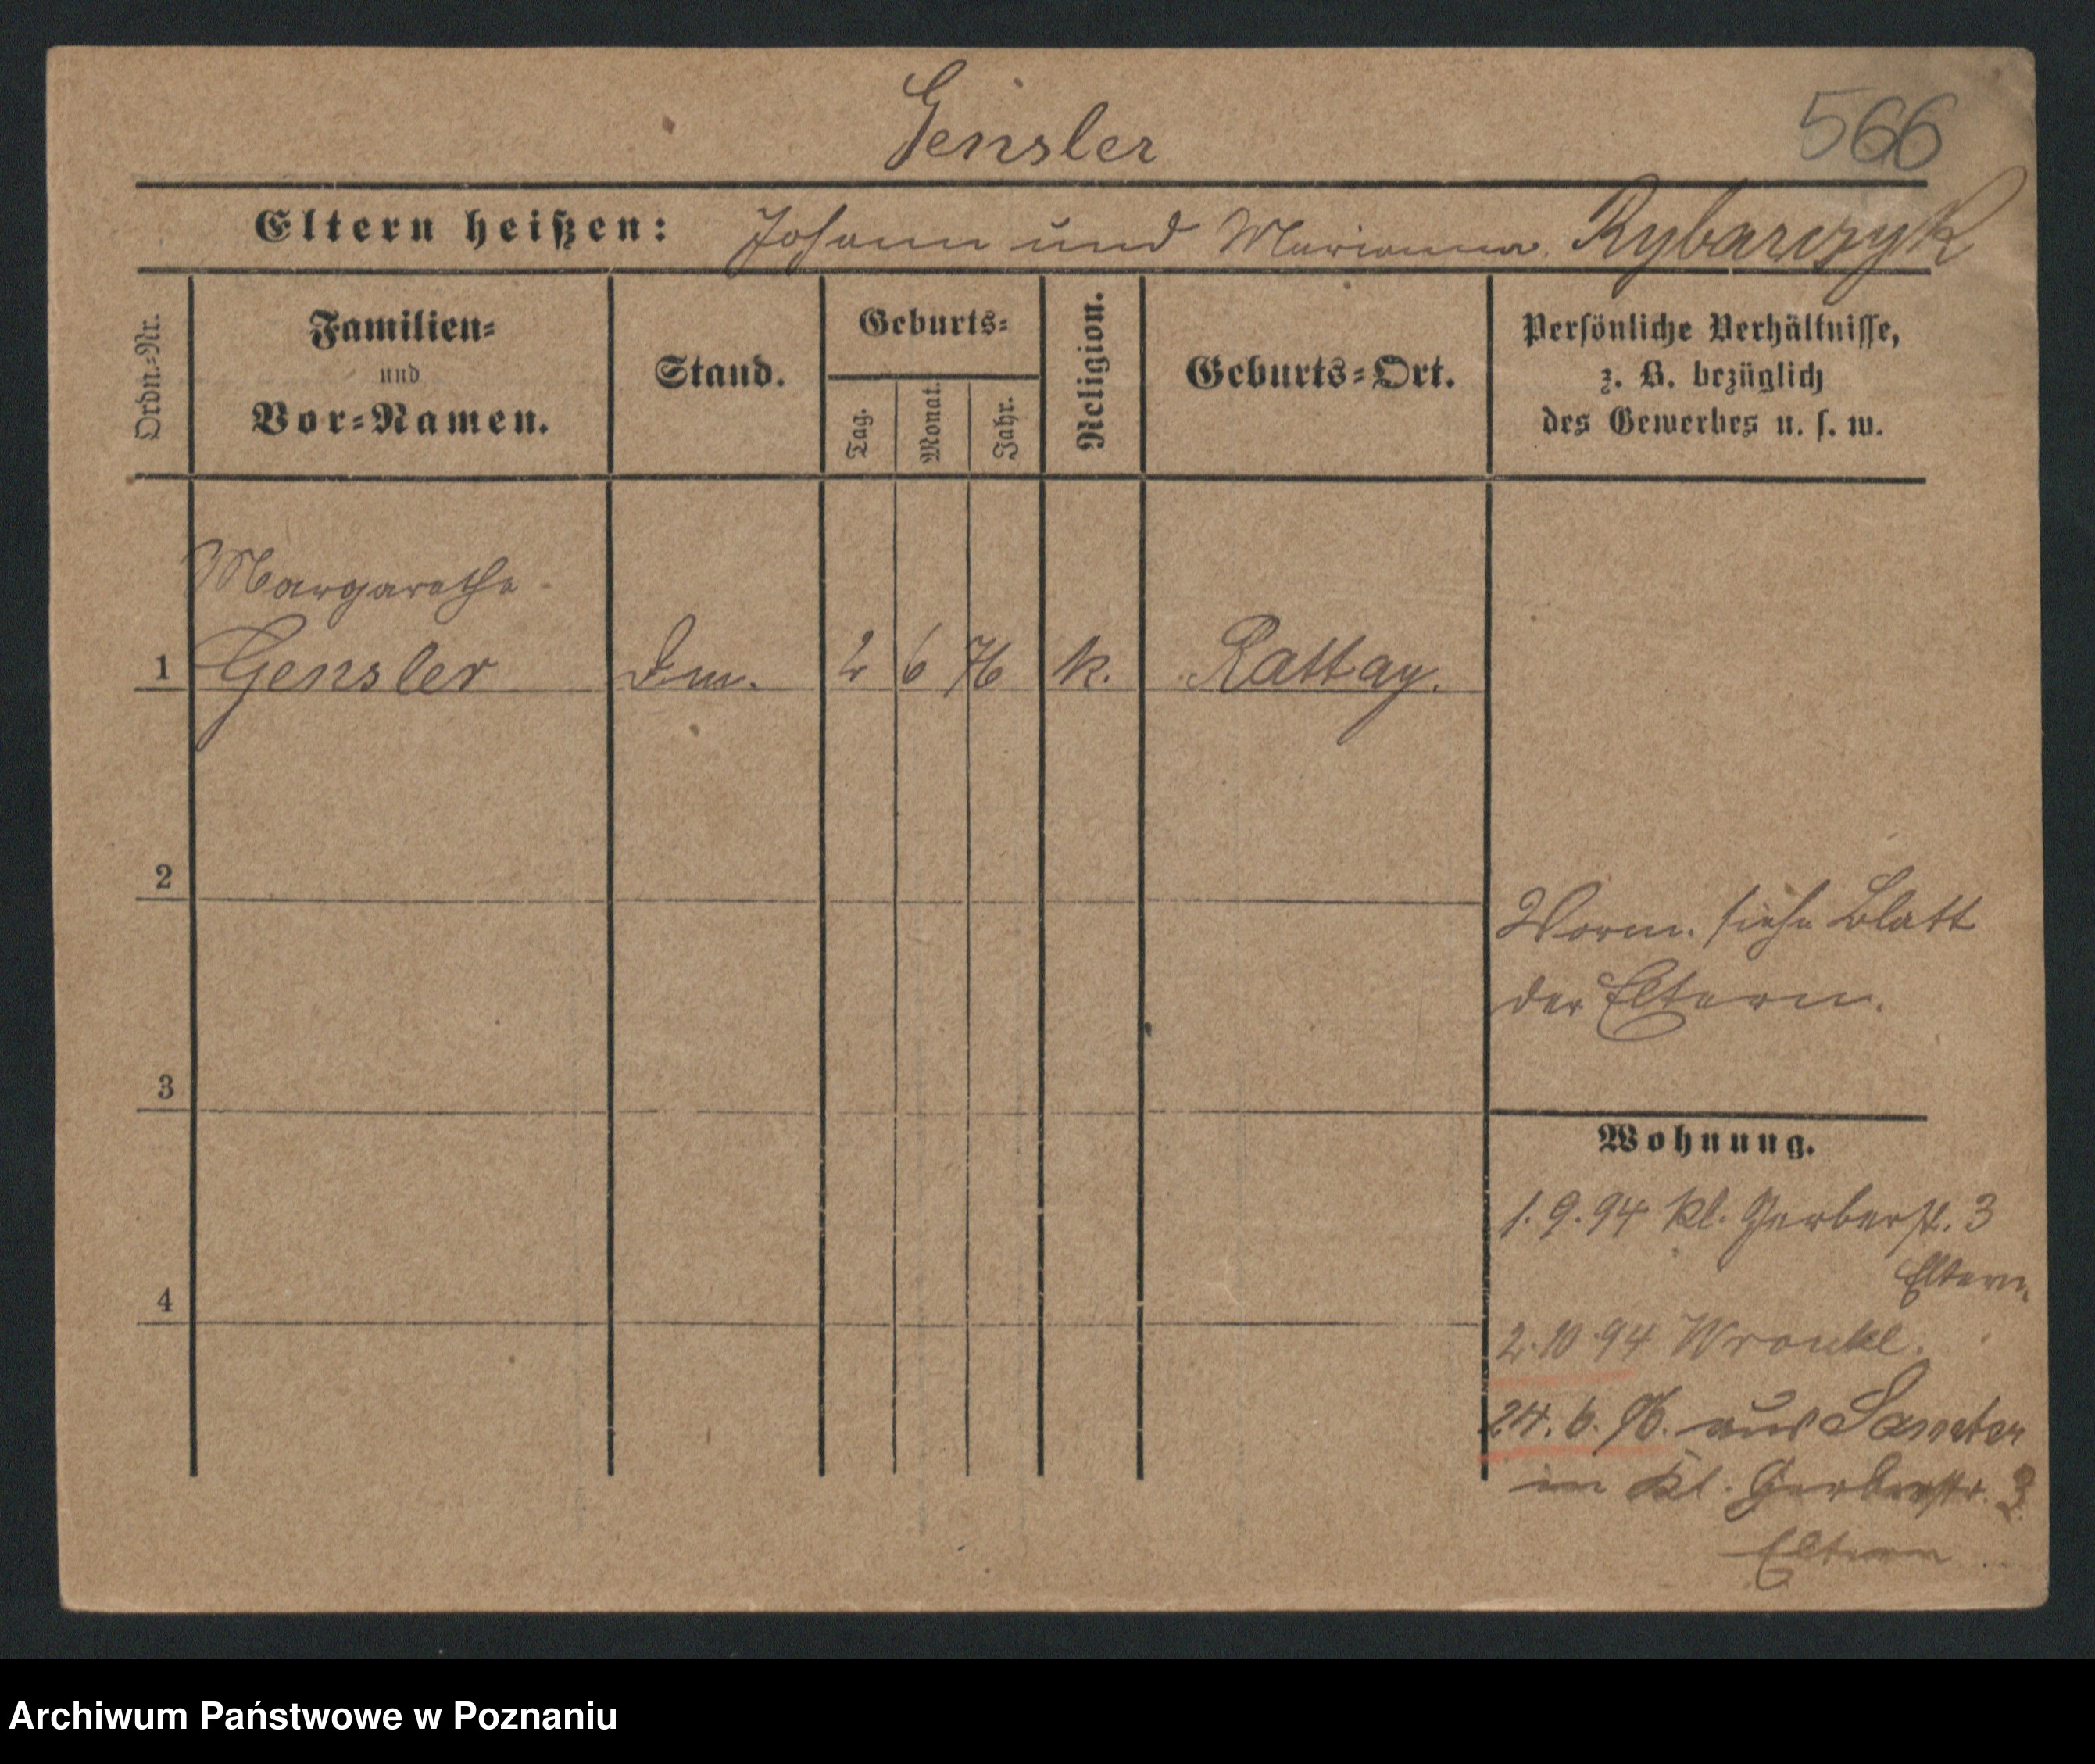 Gensler
566
Eltern heißen: Johann und Marianna Rybarczyk
Ordn.-Nr.
Familien-
und
Vor-Namen.
Stand.
Geburts-
Tag.
Monat.
Jahr.
Religion.
Geburts-Ort.
Persönliche Verhältnisse,
z. B. bezüglich
des Gewerbes u. s. w.
Margarethe
1 Gensler 2 6 76 k. Rattay.
2
Worm. siehe Blatt
der Eltern.
3
Wohnung.
1. 9. 94 kl. Gerberst. 3
Eltern.
4
2. 10 94 Wronkl.
24. 6. 96. aus Samter
in Kl. Gerberstr. 3
Eltern
Archiwum Państwowe w Poznaniu